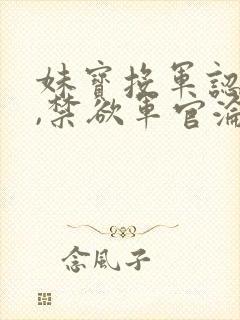 妹寶拖軍認
,禁欲軍官淪
念風子